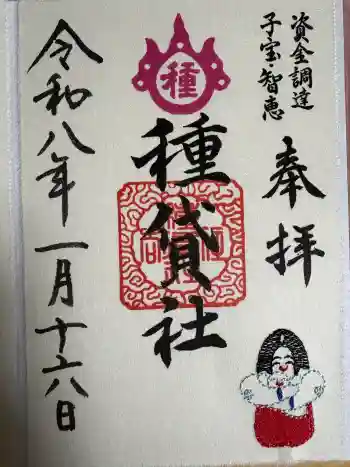 資金調達
子宝・智恵
奉拝
種
種貸社
令和八年一月十六日